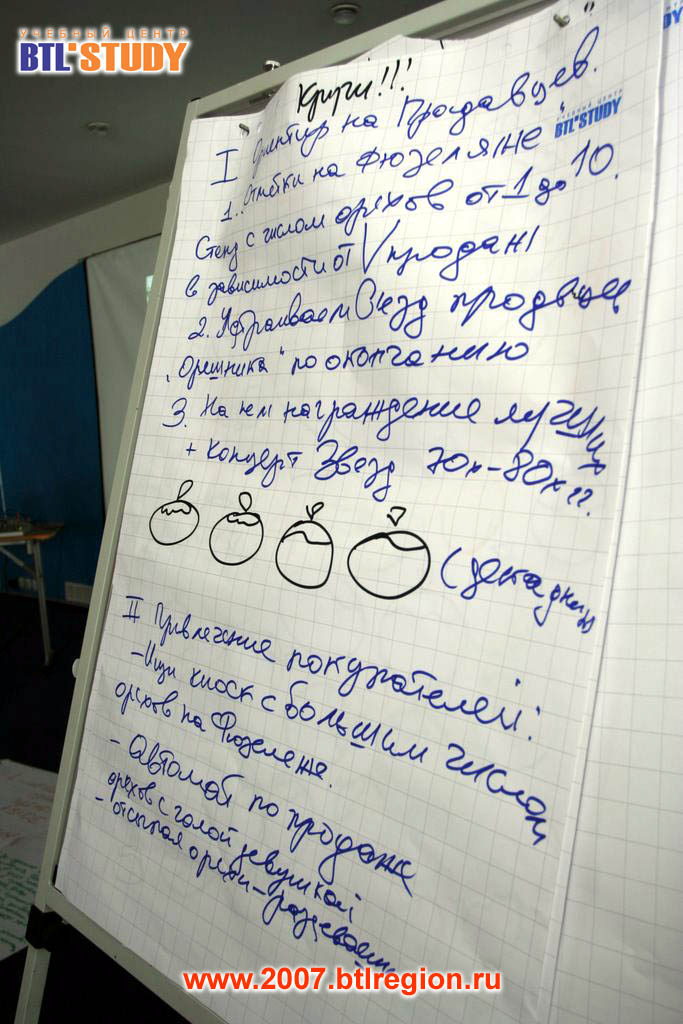 УЧЕБНЫЙ ЦЕНТР
BTL'STUDY
Круги!!!
I Ориентир на Продавцов.
УЧЕБНЫЙ ЦЕНТР
BTL'STUDY
1. Отметки на Фюзеляже
Стенд с числом орехов от 1 до 10.
в зависимости от V продаж
2. Устраиваем Съезд продавцов
"Орешника" по окончанию
3. На нем награждение лучших
+ Концерт Звезд 70х-80х гг.
(декадник)
II Привлечение покупателей:
- Ищи киоск с большим числом
орехов на Фюзеляже.
- Автомат по продаже
орехов с голой девушкой
- отсыпая орехи - раздеваем
www.2007.btlregion.ru